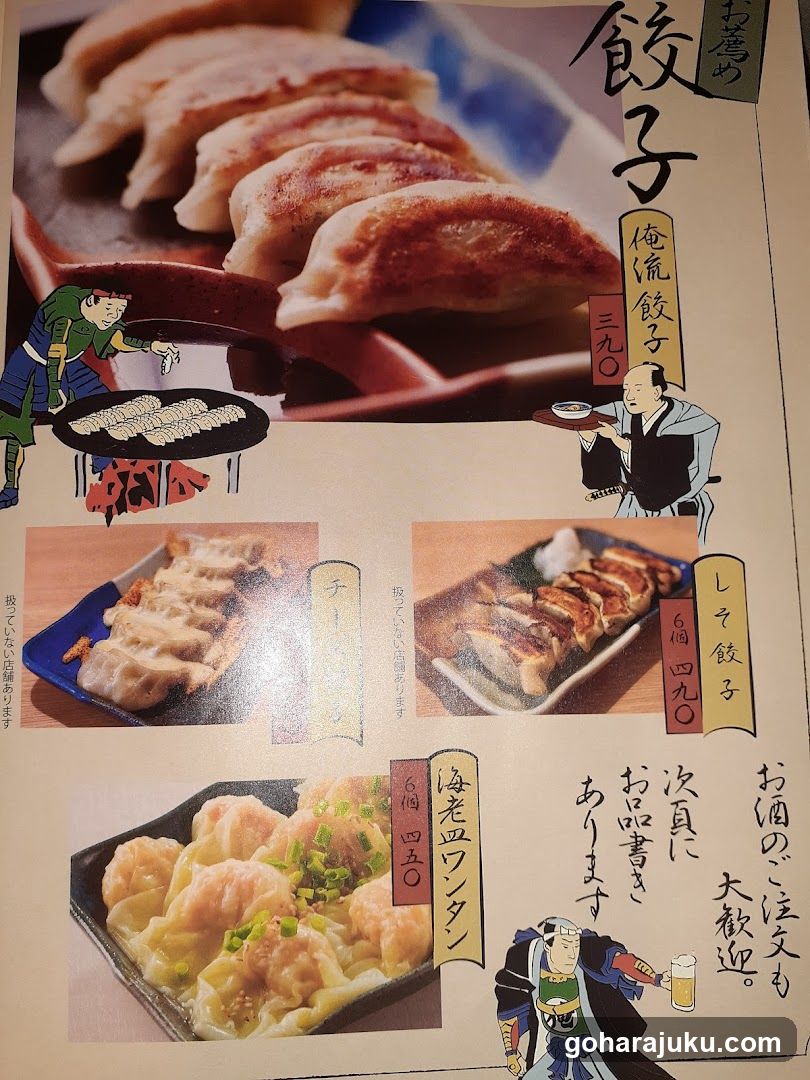 お薦め
餃子
俺流餃子
三九〇
しそ餃子
6個 四九〇
扱っていない店舗あります
チーズ餃子
扱っていない店舗あります
海老皿ワンタン
6個 四五〇
お酒のご注文も
大歓迎。
次頁に
お品書き
あります
俺
goharajuku.com